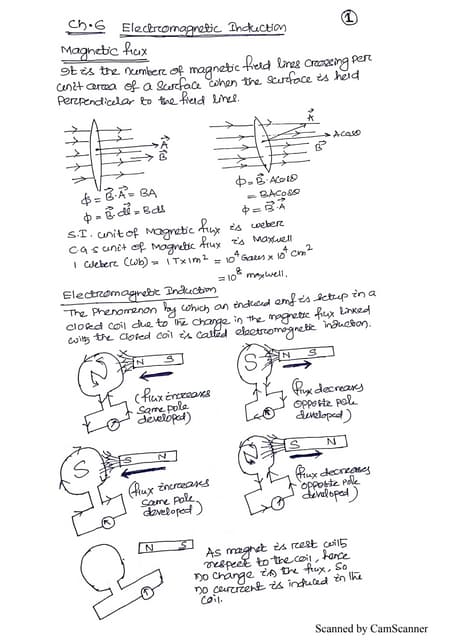 Ch.6 Electromagnetic Induction
1
Magnetic flux
It is the number of magnetic field lines crossing per
unit area of a surface when the surface is held
perpendicular to the field lines.
A⃗
B⃗
A⃗
A cosθ
B⃗
ϕ = B⃗.A⃗ = BA
ϕ = B⃗.dl⃗ = Bdl
ϕ = B⃗.A cosθ
= BA cosθ
ϕ = B⃗.A⃗
S.I. unit of Magnetic flux is weber
CGS unit of Magnetic flux is Maxwell
1 Weber (Wb) = 1T×1m² = 10⁴ Gauss × 10⁴ cm²
= 10⁸ maxwell.
Electromagnetic Induction
The Phenomenon by which an induced emf is setup in a
closed coil due to the change in the magnetic flux linked
with the closed coil is called electromagnetic induction.
N
N S
(flux increases
same pole
developed)
S
N S
(flux decreases
opposite pole
developed)
S
S N
(flux increases
same pole
developed)
N
S N
(flux decreases
opposite pole
developed)
N S
As magnet is rest with
respect to the coil, hence
no change in the flux, so
no current is induced in the
coil.
Scanned by CamScanner